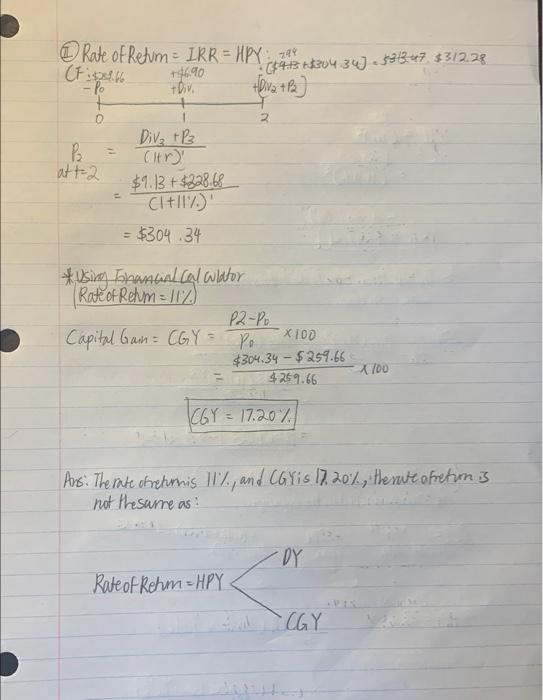 II Rate of Return = IRR = HPY:
7.94
[$9.13 + $304.34] = $313.47 $312.28
CF: $259.66 +$6.90
- P₀ + Div₁ +[Div₂ + P₂]
0 1 2
P₂ = Div₃ + P₃
at t=2 (1+r)¹
= $9.13 + $328.68
(1+11%)¹
= $304.34
* Using Financial Calculator
(Rate of Return = 11%)
Capital Gain = CGY = P2-P₀ x100
P₀
= $304.34 - $259.66 x100
$259.66
CGY = 17.20%
Ans: The rate of return is 11%, and CGY is 17.20%, the rate of return is
not the same as:
DY
Rate of Return = HPY
CGY